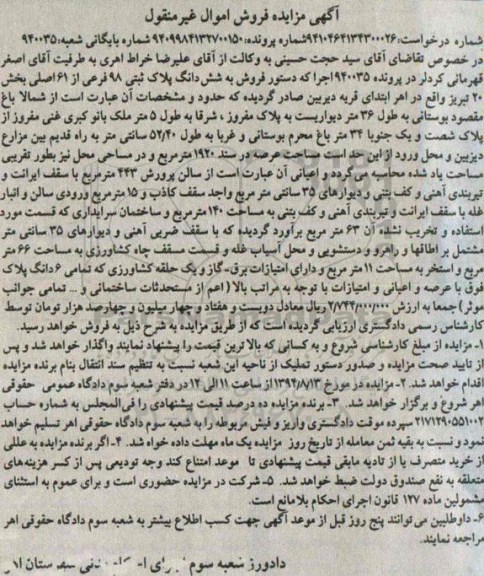 آگهی مزایده فروش اموال غیرمنقول
شماره درخواست:۹۴۱۰۴۶۴۱۳۴۳۰۰۰۲۶ شماره پرونده:۹۴۰۹۹۸۴۱۳۲۷۰۰۱۵۰ شماره بایگانی شعبه:۹۴۰۰۳۵
در خصوص تقاضای آقای سید حجت حسینی به وکالت از آقای علیرضا خراط اهری به طرفیت آقای اصغر
قهرمانی کردلر در پرونده ۹۴۰۰۳۵ اجرا که دستور فروش به شش دانگ پلاک ثبتی ۹۸ فرعی از ۶۱ اصلی بخش
۲۰ تبریز واقع در اهر ابتدای قریه دیربین صادر گردیده که حدود و مشخصات آن عبارت است از شمالا باغ
مقصود بوستانی به طول ۳۶ متر دیواریست به پلاک مفروز ، شرقا به طول ۵ متر ملک بانو کبری غنی مفروز از
پلاک شصت و یک جنوبا ۳۴ متر باغ محرم بوستانی و غربا به طول ۵۲/۴۰ سانتی متر به راه قدیم بین مزارع
دیزبین و محل ورود از این حد است مساحت عرصه در سند ۱۹۲۰ مترمربع و در مساحی محل نیز بطور تقریبی
مساحت یاد شده محاسبه می گردد و اعیانی آن عبارت است از سالن پرورش ۴۴۳ مترمربع با سقف ایرانت و
تیربندی آهنی و کف بتنی و دیوارهای ۳۵ سانتی متر مربع واجد سقف کاذب و ۱۵ مترمربع ورودی سالن و انبار
غله با سقف ایرانت و تیربندی آهنی و کف بتنی به مساحت ۱۴۰ مترمربع و ساختمان سرایداری که قسمت مورد
استفاده و تخریب نشده آن ۶۳ متر مربع برآورد گردیده که با سقف ضربی آهنی و دیوارهای ۳۵ سانتی متر
مشتمل بر اطاقها و راهرو و دستشویی و محل آسیاب غله و قسمت مسقف چاه کشاورزی به مساحت ۶۶ متر
مربع و استخر به مساحت ۱۱ متر مربع و دارای امتیازات برق-گاز و یک حلقه کشاورزی که تمامی ۶ دانگ پلاک
فوق با عرصه و اعیانی و امتیازات با توجه به مراتب بالا (اعم از مستحدثات ساختمانی و ... تمامی جوانب
موثر) جمعا به ارزش ۲/۷۴۴/۰۰۰/۰۰۰ ریال معادل دویست و هفتاد و چهار میلیون و چهارصد هزار تومان توسط
کارشناس رسمی دادگستری ارزیابی گردیده است که از طریق مزایده به شرح ذیل به فروش خواهد رسید.
۱- مزایده از مبلغ کارشناسی شروع و به کسانی که بالا ترین قیمت را پیشنهاد نمایند واگذار خواهد شد و پس
از تایید صحت مزایده و صدور دستور تملیک از ناحیه این شعبه نسبت به تنظیم سند انتقال بنام برنده مزایده
اقدام خواهد شد. ۲- مزایده در مورخ ۱۳۹۴/۸/۱۳ از ساعت ۱۱ الی ۱۲ در دفتر شعبه سوم دادگاه عمومی حقوقی
اهر شروع و برگزار خواهد شد. ۳- برنده مزایده ده درصد قیمت پیشنهادی را فی المجلس به شماره حساب
۲۱۷۱۲۹۰۵۵۱۰۰۲ سپرده موقت دادگستری واریز و فیش مربوطه را به شعبه سوم دادگاه حقوقی اهر تسلیم خواهد
نمود و نسبت به بقیه ثمن معامله از تاریخ روز مزایده یک ماه مهلت داده خواه شد. ۴- اگر برنده مزایده به عللی
از خرید متصرف یا از تادیه مابقی قیمت پیشنهادی تا موعد امتناع کند وجه تودیعی پس از کسر هزینه های
متعلقه به نفع صندوق دولت ضبط خواهد شد. ۵- شرکت در مزایده حضوری است و برای عموم به استثنای
مشمولین ماده ۱۲۷ قانون اجرای احکام بلامانع است.
۶- داوطلبین می توانند پنج روز قبل از موعد آگهی جهت کسب اطلاع بیشتر به شعبه سوم دادگاه حقوقی اهر
مراجعه نمایند.
دادورز شعبه سوم اجرای